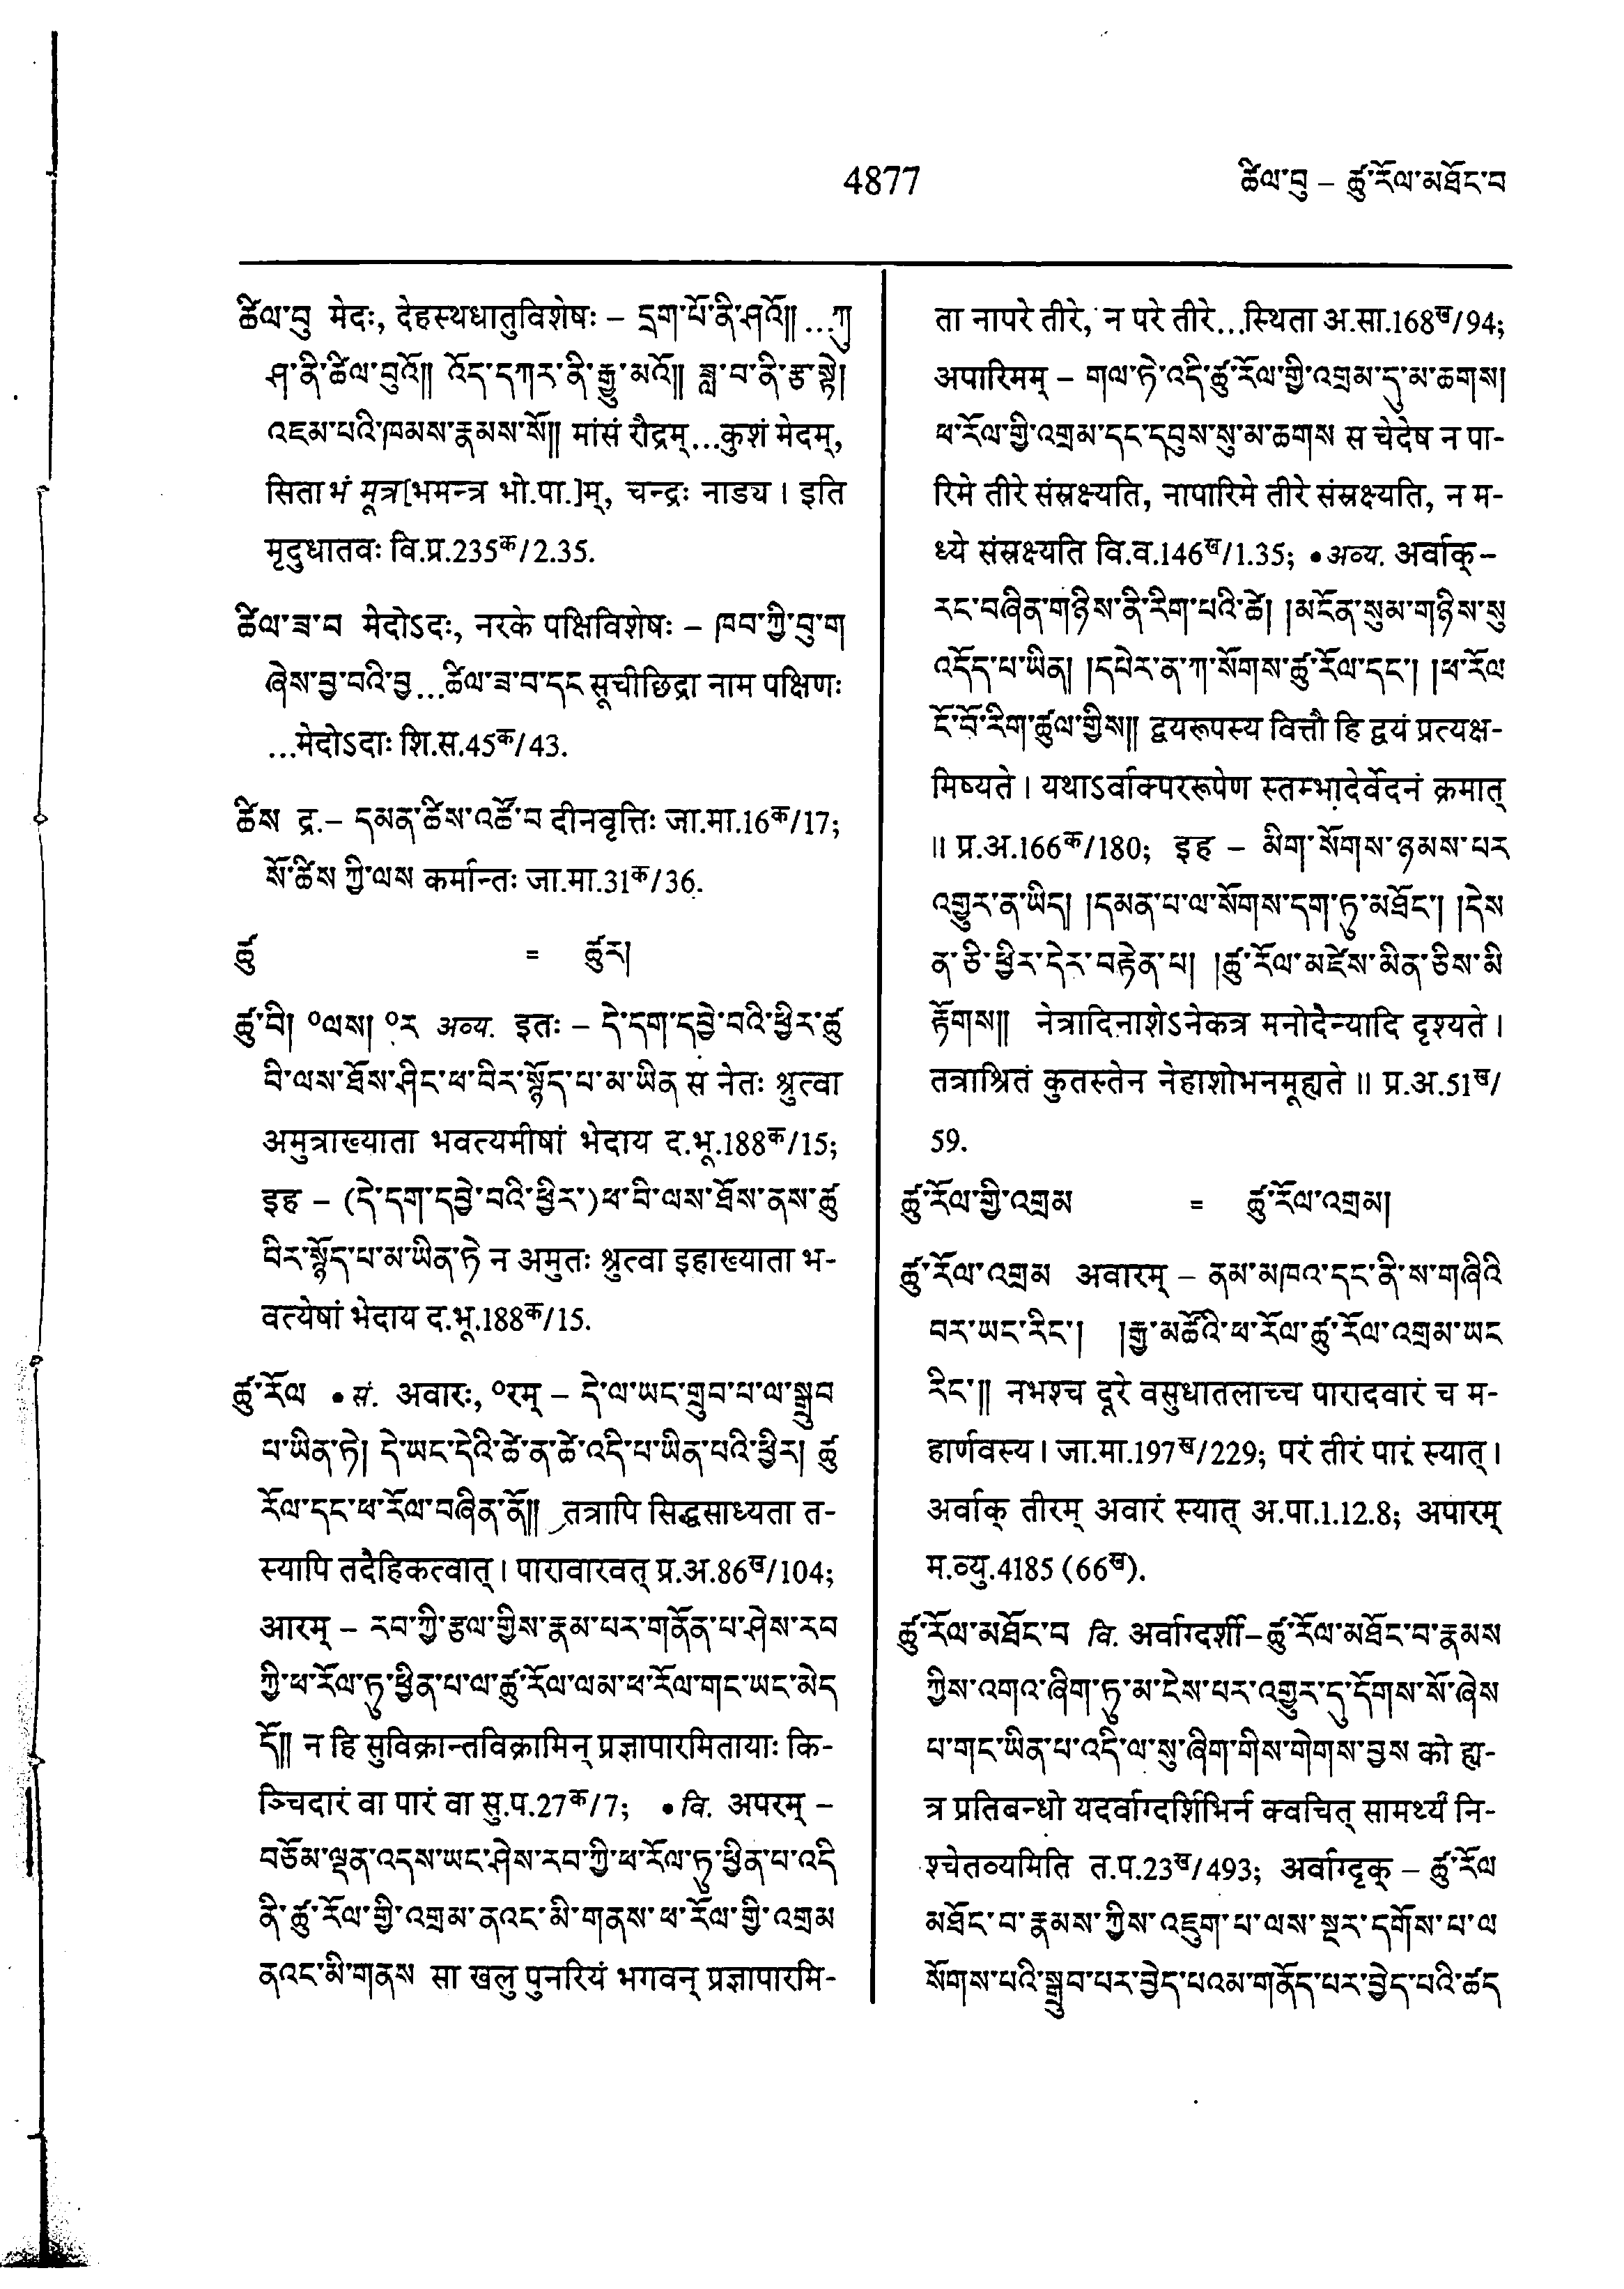 4877
ཚིལ་བུ – ཚུ་རོལ་མཐོང་བ
ཚིལ་བུ मेदः, देहस्थधातुविशेषः – དྲག་པོ་ནི་ཤའོ༎ …ཀུ
ཤ་ནི་ཚིལ་བུའོ༎ འོད་དཀར་ནི་རྒྱུ་མའོ༎ ཟླ་བ་ནི་རྩ་སྟེ།
འཇམ་པའི་ཁམས་རྣམས་སོ༎ मांसं रौद्रम्…कुशं मेदम्,
सिताभं मूत्र[भमन्त्र भो.पा.]म्, चन्द्रः नाड्य । इति
मृदुधातवः वि.प्र.235क/2.35.
ཚིལ་ཟ་བ मेदोऽदः, नरके पक्षिविशेषः – ཁབ་ཀྱི་བུ་ག
ཞེས་བྱ་བའི་བྱ…ཚིལ་ཟ་བ་དང सूचीछिद्रा नाम पक्षिणः
…मेदोऽदाः शि.स.45क/43.
ཚིས द्र.– དམན་ཚིས་འཚོ་བ दीनवृत्तिः जा.मा.16क/17;
སོ་ཚིས ཀྱི་ལས कर्मान्तः जा.मा.31क/36.
ཚུ = ཚུར།
ཚུ་བི། ०ལས། ०ར अव्य. इतः – དེ་དག་དབྱེ་བའི་ཕྱིར་ཚུ
བི་ལས་ཐོས་ཤིང་ཕ་བིར་སྨྲོད་པ་མ་ཡིན स नेतः श्रुत्वा
अमुत्राख्याता भवत्यमीषां भेदाय द.भू.188क/15;
इह – (དེ་དག་དབྱེ་བའི་ཕྱིར་)ཕ་བི་ལས་ཐོས་ནས་ཚུ
བིར་སྨྲོད་པ་མ་ཡིན་ཏེ न अमुतः श्रुत्वा इहाख्याता भ-
वत्येषां भेदाय द.भू.188क/15.
ཚུ་རོལ • सं. अवारः, ०रम् – དེ་ལ་ཡང་གྲུབ་པ་ལ་སྒྲུབ
པ་ཡིན་ཏེ། དེ་ཡང་དེའི་ཚེ་ན་ཚེ་འདི་པ་ཡིན་པའི་ཕྱིར། ཚུ
རོལ་དང་ཕ་རོལ་བཞིན་ནོ༎ तत्रापि सिद्धसाध्यता त-
स्यापि तदैहिकत्वात् । पारावारवत् प्र.अ.86ख/104;
आरम् – རབ་ཀྱི་རྩལ་གྱིས་རྣམ་པར་གནོན་པ་ཤེས་རབ
ཀྱི་ཕ་རོལ་ཏུ་ཕྱིན་པ་ལ་ཚུ་རོལ་ལམ་ཕ་རོལ་གང་ཡང་མེད
དོ༎ न हि सुविक्रान्तविक्रामिन् प्रज्ञापारमितायाः कि-
ञ्चिदारं वा पारं वा सु.प.27क/7; • वि. अपरम् –
བཅོམ་ལྡན་འདས་ཡང་ཤེས་རབ་ཀྱི་ཕ་རོལ་ཏུ་ཕྱིན་པ་འདི
ནི་ཚུ་རོལ་གྱི་འགྲམ་ནའང་མི་གནས་ཕ་རོལ་གྱི་འགྲམ
ནའང་མི་གནས सा खलु पुनरियं भगवन् प्रज्ञापारमि-
ता नापरे तीरे, न परे तीरे…स्थिता अ.सा.168ख/94;
अपारिमम् – གལ་ཏེ་འདི་ཚུ་རོལ་གྱི་འགྲམ་དུ་མ་ཆགས།
ཕ་རོལ་གྱི་འགྲམ་དང་དབུས་སུ་མ་ཆགས स चेदेष न पा-
रिमे तीरे संस्रक्ष्यति, नापारिमे तीरे संस्रक्ष्यति, न म-
ध्ये संस्रक्ष्यति वि.व.146ख/1.35; • अव्य. अर्वाक्–
རང་བཞིན་གཉིས་ནི་རིག་པའི་ཚེ། །མངོན་སུམ་གཉིས་སུ
འདོད་པ་ཡིན། །དཔེར་ན་ཀ་སོགས་ཚུ་རོལ་དང་། །ཕ་རོལ
ངོ་བོ་རིག་ཚུལ་གྱིས༎ द्वयरूपस्य वित्तौ हि द्वयं प्रत्यक्ष-
मिष्यते । यथाऽर्वाक्पररूपेण स्तम्भादेर्वेदनं क्रमात्
॥ प्र.अ.166क/180; इह – མིག་སོགས་ཉམས་པར
འགྱུར་ན་ཡིད། །དམན་པ་ལ་སོགས་དག་ཏུ་མཐོང་། །དེས
ན་ཅི་ཕྱིར་དེར་བརྟེན་པ། །ཚུ་རོལ་མཛེས་མིན་ཅིས་མི
རྟོགས༎ नेत्रादिनाशेऽनेकत्र मनोदैन्यादि दृश्यते ।
तत्राश्रितं कुतस्तेन नेहाशोभनमूह्यते ॥ प्र.अ.51ख/
59.
ཚུ་རོལ་གྱི་འགྲམ = ཚུ་རོལ་འགྲམ།
ཚུ་རོལ་འགྲམ अवारम् – ནམ་མཁའ་དང་ནི་ས་གཞིའི
བར་ཡང་རིང་། །རྒྱ་མཚོའི་ཕ་རོལ་ཚུ་རོལ་འགྲམ་ཡང
རིང་༎ नभश्च दूरे वसुधातलाच्च पारादवारं च म-
हार्णवस्य । जा.मा.197ख/229; परं तीरं पारं स्यात् ।
अर्वाक् तीरम् अवारं स्यात् अ.पा.1.12.8; अपारम्
म.व्यु.4185 (66ख).
ཚུ་རོལ་མཐོང་བ वि. अर्वाग्दर्शी–ཚུ་རོལ་མཐོང་བ་རྣམས
ཀྱིས་འགའ་ཞིག་ཏུ་མ་ངེས་པར་འགྱུར་དུ་དོགས་སོ་ཞེས
པ་གང་ཡིན་པ་འདི་ལ་སུ་ཞིག་གིས་གེགས་བྱས को ह्य-
त्र प्रतिबन्धो यदर्वाग्दर्शिभिर्न क्वचित् सामर्थ्यं नि-
श्चेतव्यमिति त.प.23ख/493; अर्वाग्दृक् – ཚུ་རོལ
མཐོང་བ་རྣམས་ཀྱིས་འཇུག་པ་ལས་སྔར་དགོས་པ་ལ
སོགས་པའི་སྒྲུབ་པར་བྱེད་པའམ་གནོད་པར་བྱེད་པའི་ཚད